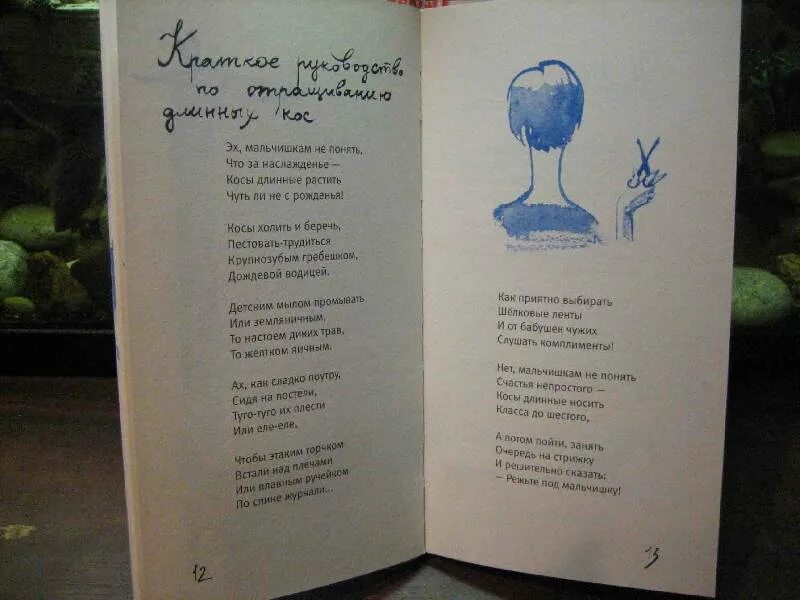 Краткое руководство
по отращиванию
длинных кос
Эх, мальчишкам не понять,
Что за наслажденье —
Косы длинные растить
Чуть ли не с рожденья!
Косы холить и беречь,
Пестовать-трудиться
Крупнозубым гребешком,
Дождевой водицей.
Детским мылом промывать
Или земляничным,
То настоем диких трав,
То желтком яичным.
Ах, как сладко поутру,
Сидя на постели,
Туго-туго их плести
Или еле-еле,
Чтобы этаким торчком
Встали над плечами
Или плавным ручейком
По спине журчали...
12
Как приятно выбирать
Шёлковые ленты
И от бабушек чужих
Слушать комплименты!
Нет, мальчишкам не понять
Счастья непростого —
Косы длинные носить
Класса до шестого,
А потом пойти, занять
Очередь на стрижку
И решительно сказать:
— Режьте под мальчишку!
13